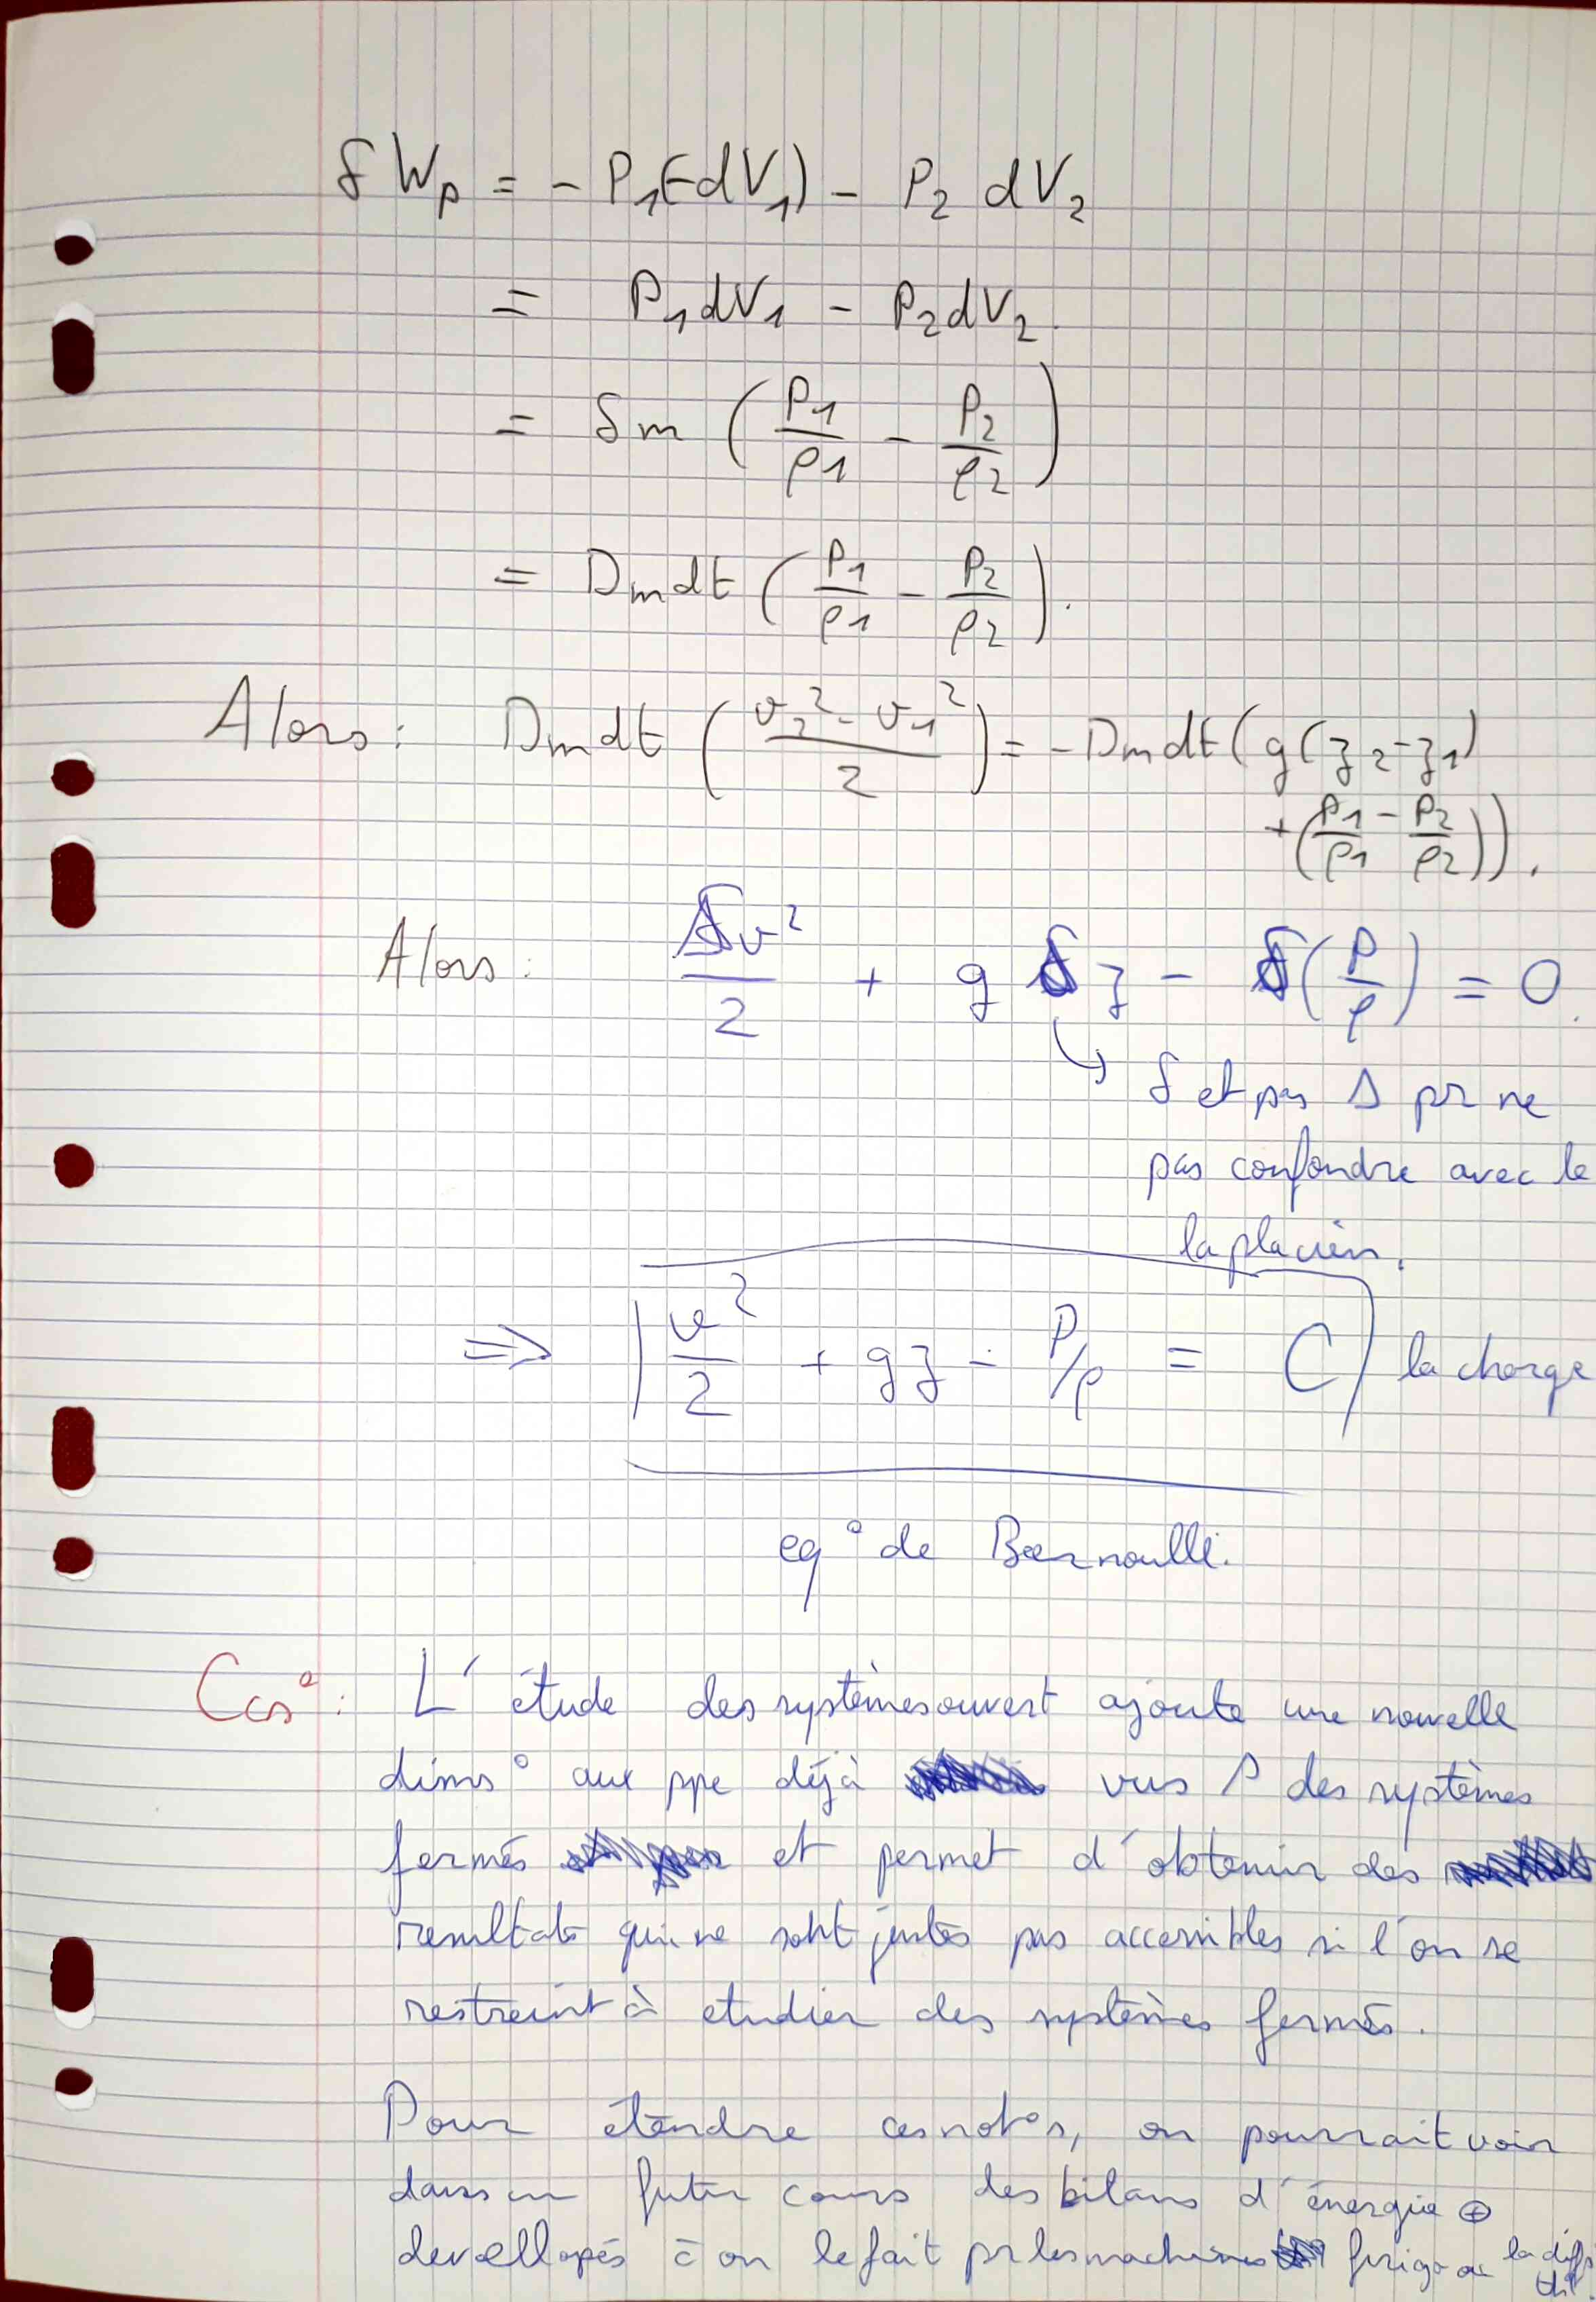 δW_p = - P₁(-dV₁) - P₂ dV₂
= P₁dV₁ - P₂dV₂.
= δm (P₁/ρ₁ - P₂/ρ₂)
= Dmdt (P₁/ρ₁ - P₂/ρ₂).
Alors: Dmdt ((v₂² - v₁²)/2) = -Dmdt (g(z₂-z₁)
+ (P₁/ρ₁ - P₂/ρ₂)).
Alors: δv²/2 + g δz - δ(P/ρ) = 0.
↳ δ et pas Δ pr ne
pas confondre avec le
laplacien.
⇒ v²/2 + gz - P/ρ = C la charge
eq° de Bernoulli.
Ccs°: L'étude des systèmes ouvert ajoute une nouvelle
dims° aux ppe déjà vus des systèmes
fermés et permet d'obtenir des
resultats qui ne sont justes pas accessibles si l'on se
restreint à etudier des systèmes fermés.
Pour étendre ces not°s, on pourrait voir
dans un futur cours des bilans d'énergie ⊕
devellopés c̄ on le fait pr les machines frigo ou la diff°
th